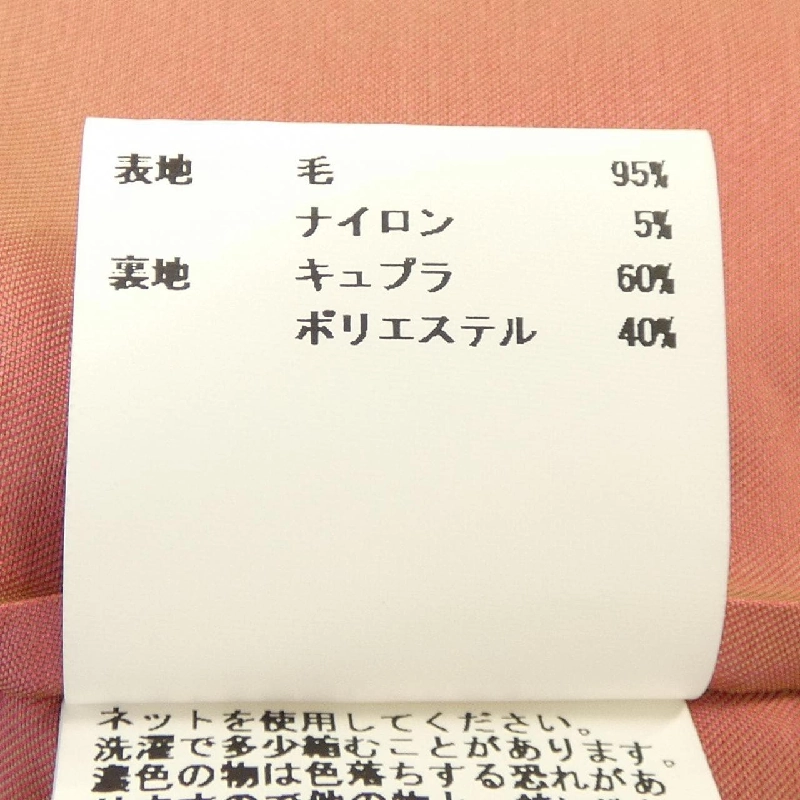 表地 毛 95%
ナイロン 5%
裏地 キュプラ 60%
ポリエステル 40%
ネットを使用してください。
洗濯で多少縮むことがあります。
濃色の物は色落ちする恐れがあ
りますので他の物と